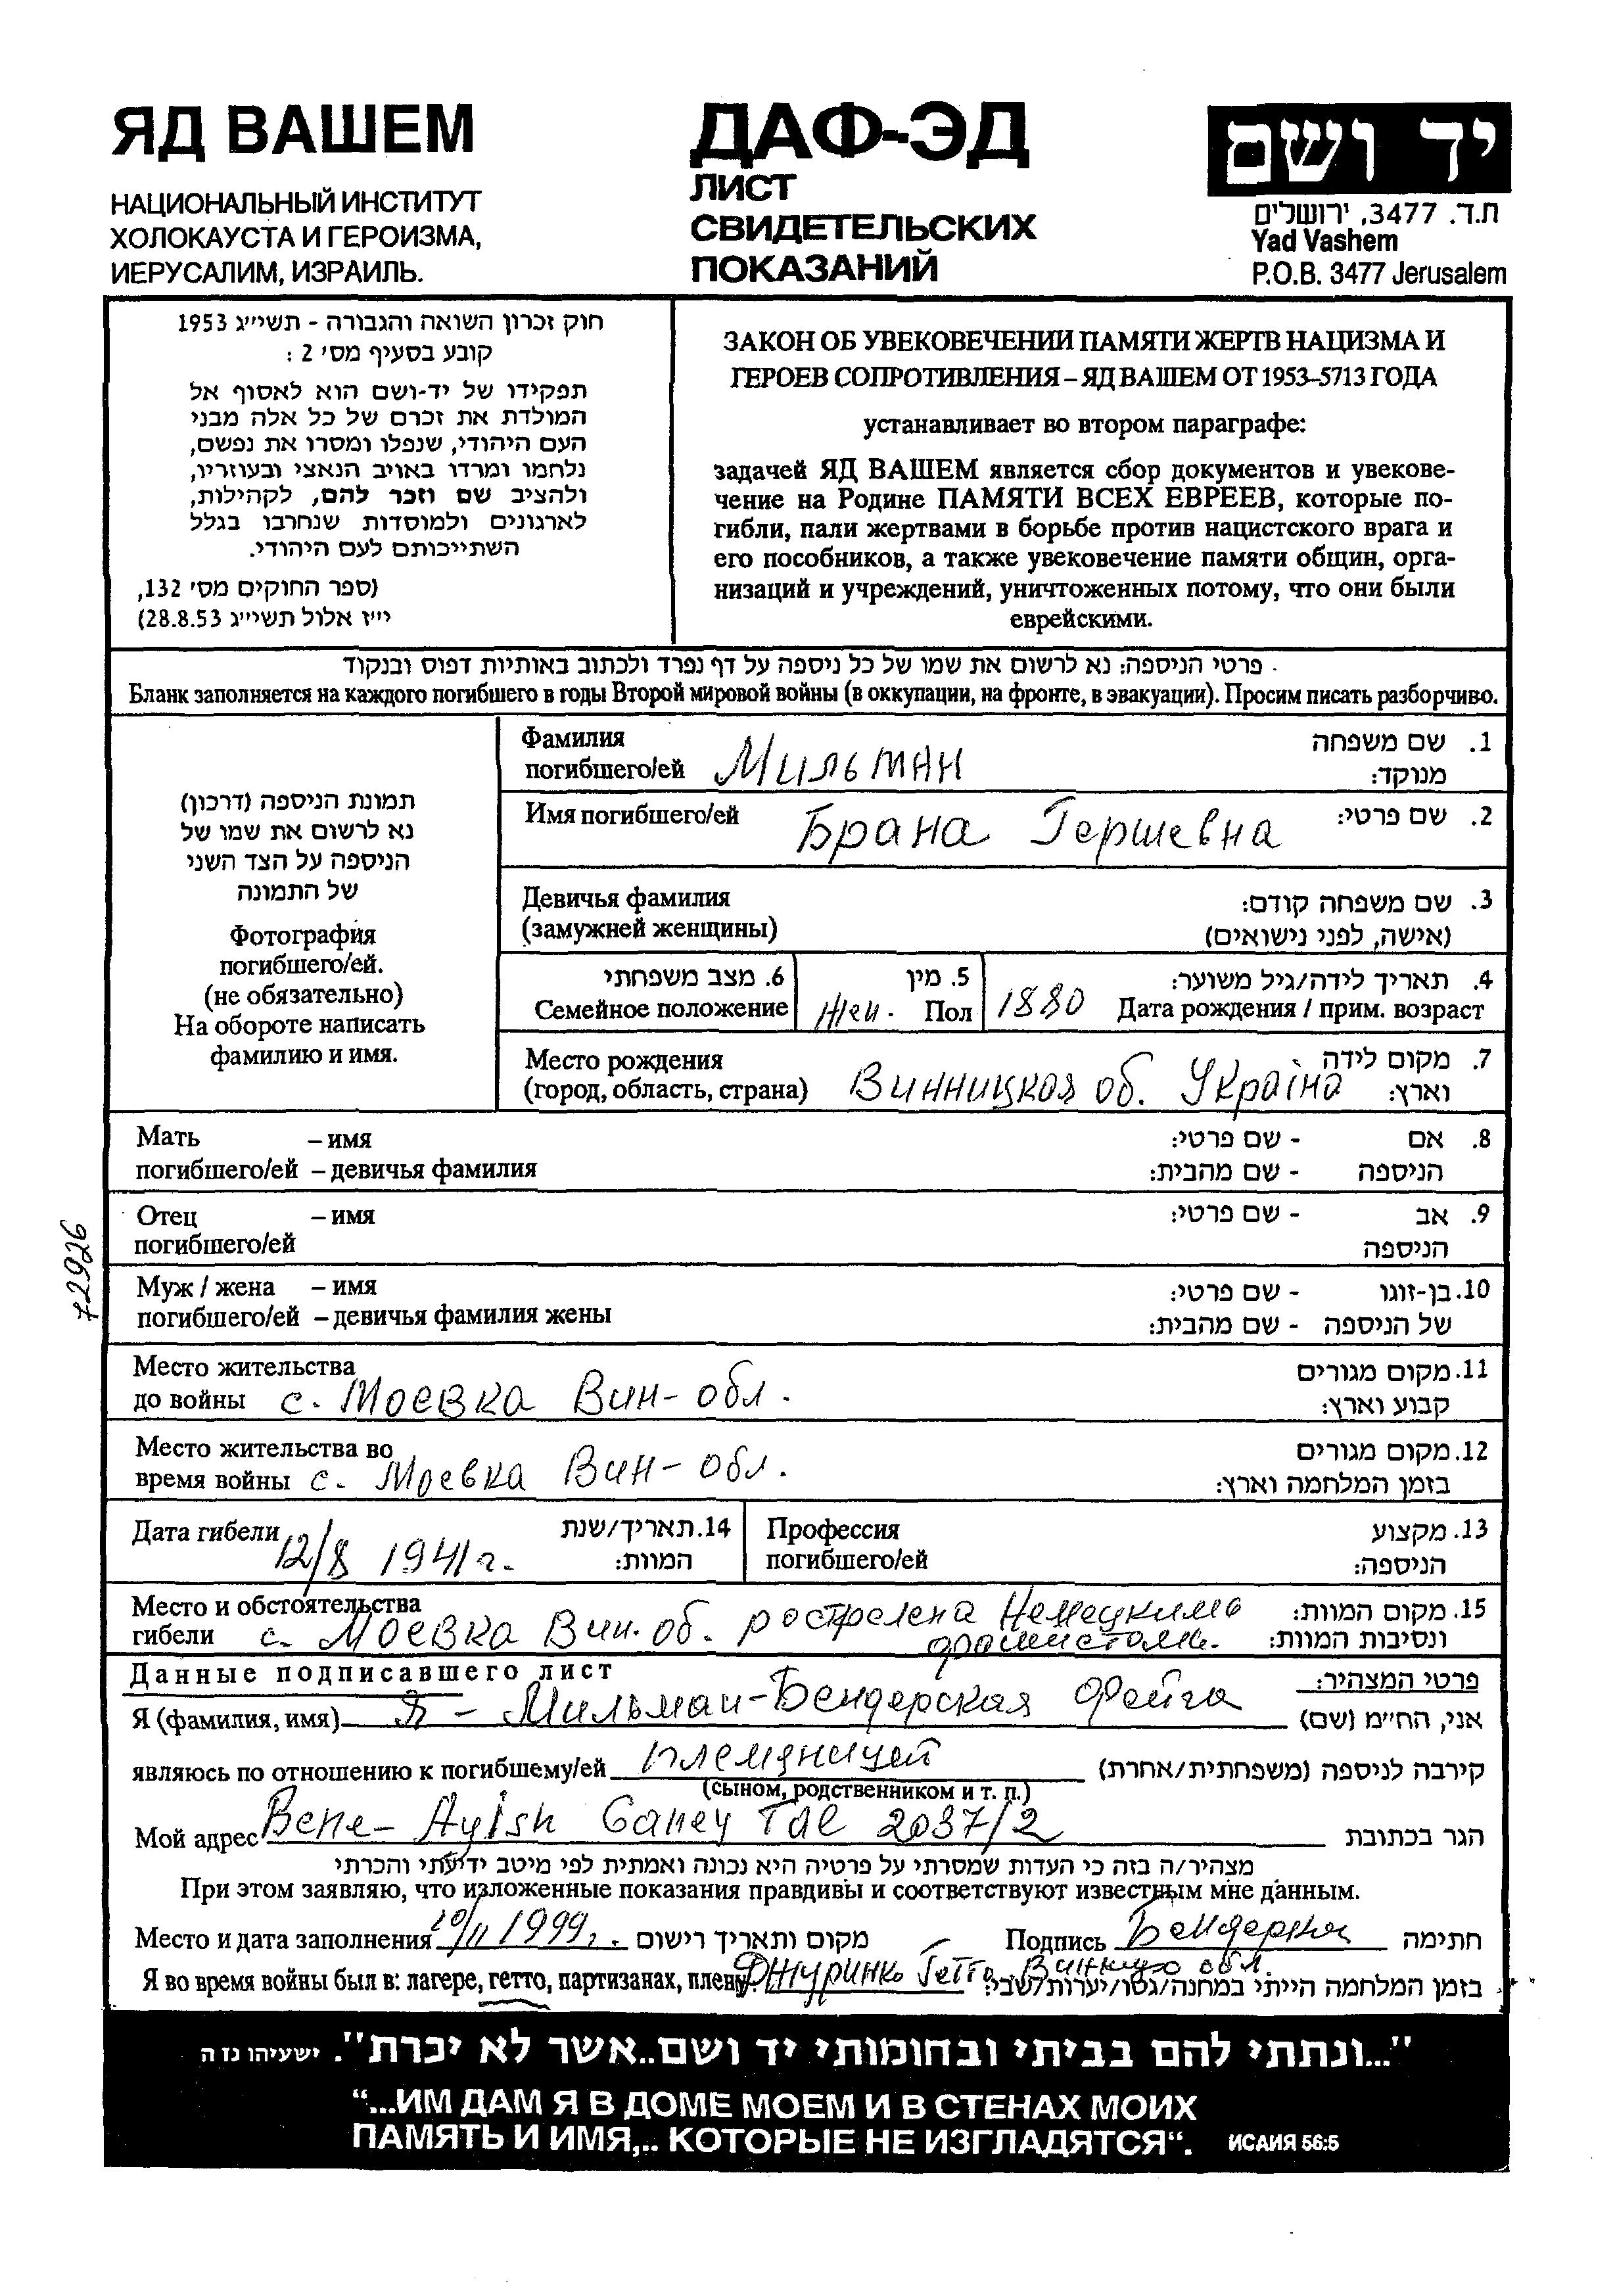 ЯД ВАШЕМ
НАЦИОНАЛЬНЫЙ ИНСТИТУТ
ХОЛОКАУСТА И ГЕРОИЗМА,
ИЕРУСАЛИМ, ИЗРАИЛЬ.
ДАФ-ЭД
ЛИСТ
СВИДЕТЕЛЬСКИХ
ПОКАЗАНИЙ
יד ושם
ת.ד. 3477, ירושלים
Yad Vashem
P.O.B. 3477 Jerusalem
חוק זכרון השואה והגבורה - תשי״ג 1953
קובע בסעיף מס׳ 2 :
תפקידו של יד-ושם הוא לאסוף אל
המולדת את זכרם של כל אלה מבני
העם היהודי, שנפלו ומסרו את נפשם,
נלחמו ומרדו באויב הנאצי ובעוזריו,
ולהציב שם וזכר להם, לקהילות,
לארגונים ולמוסדות שנחרבו בגלל
השתייכותם לעם היהודי.
(ספר החוקים מס׳ 132,
י״ז אלול תשי״ג 28.8.53)
ЗАКОН ОБ УВЕКОВЕЧЕНИИ ПАМЯТИ ЖЕРТВ НАЦИЗМА И
ГЕРОЕВ СОПРОТИВЛЕНИЯ – ЯД ВАШЕМ ОТ 1953–5713 ГОДА
устанавливает во втором параграфе:
задачей ЯД ВАШЕМ является сбор документов и увекове-
чение на Родине ПАМЯТИ ВСЕХ ЕВРЕЕВ, которые по-
гибли, пали жертвами в борьбе против нацистского врага и
его пособников, а также увековечение памяти общин, орга-
низаций и учреждений, уничтоженных потому, что они были
еврейскими.
פרטי הניספה: נא לרשום את שמו של כל ניספה על דף נפרד ולכתוב באותיות דפוס ובנקוד
Бланк заполняется на каждого погибшего в годы Второй мировой войны (в оккупации, на фронте, в эвакуации). Просим писать разборчиво.
תמונת הניספה (דרכון)
נא לרשום את שמו של
הניספה על הצד השני
של התמונה
Фотография
погибшего/ей.
(не обязательно)
На обороте написать
фамилию и имя.
Фамилия 1. שם משפחה
погибшего/ей Мильман מנוקד:
Имя погибшего/ей Брана Гершевна 2. שם פרטי:
Девичья фамилия 3. שם משפחה קודם:
(замужней женщины) (אישה, לפני נישואים)
6. מצב משפחתי 5. מין 4. תאריך לידה/גיל משוער:
Семейное положение Жен. Пол 1880 Дата рождения / прим. возраст
Место рождения 7. מקום לידה
(город, область, страна) Винницкая об. Україна וארץ:
Мать – имя 8. אם - שם פרטי:
погибшего/ей – девичья фамилия הניספה - שם מהבית:
Отец – имя 9. אב - שם פרטי:
погибшего/ей הניספה
Муж / жена – имя 10. בן-זוגו - שם פרטי:
погибшего/ей – девичья фамилия жены של הניספה - שם מהבית:
Место жительства 11. מקום מגורים
до войны с. Моевка Вин- обл. קבוע וארץ:
Место жительства во 12. מקום מגורים
время войны с. Моевка Вин- обл. בזמן המלחמה וארץ:
Дата гибели 12/8 1941 г. 14. תאריך/שנת
המוות:
Профессия 13. מקצוע
погибшего/ей הניספה:
Место и обстоятельства 15. מקום המוות:
гибели с. Моевка Вин. об. рострелена Немецкимь
фашистами. ונסיבות המוות:
Данные подписавшего лист פרטי המצהיר:
Я (фамилия, имя) Я - Мильман-Бендерская Фейга אני, הח״מ (שם)
являюсь по отношению к погибшему/ей племяницей קירבה לניספה (משפחתית/אחרת)
(сыном, родственником и т. п.)
Мой адрес Bene- Ayish Ganey Tal 2037/2 הגר בכתובת
מצהיר/ה בזה כי העדות שמסרתי על פרטיה היא נכונה ואמתית לפי מיטב ידיעתי והכרתי
При этом заявляю, что изложенные показания правдивы и соответствуют известным мне данным.
Место и дата заполнения 10/11 1999 г. מקום ותאריך רישום Подпись Бендерская חתימה
Я во время войны был в: лагере, гетто, партизанах, плену: Джуринко Гетто обл. בזמן המלחמה הייתי במחנה/גטו/יערות/שבי:
"...ונתתי להם בביתי ובחומותי יד ושם..אשר לא יכרת". ישעיהו נז ה
“...ИМ ДАМ Я В ДОМЕ МОЕМ И В СТЕНАХ МОИХ
ПАМЯТЬ И ИМЯ,.. КОТОРЫЕ НЕ ИЗГЛАДЯТСЯ“. ИСАИЯ 56:5
72926